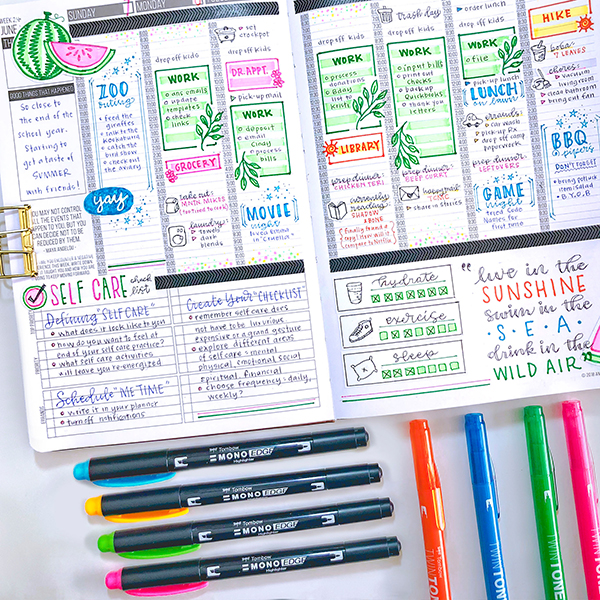 WEEK 26
JUNE
SUNDAY
MONDAY
GOOD THINGS THAT HAPPENED
So close to
the end of the
school year.
Starting to
get a taste of
SUMMER
with friends!
YOU MAY NOT CONTROL
ALL THE EVENTS THAT
HAPPEN TO YOU, BUT YOU
CAN DECIDE NOT TO BE
REDUCED BY THEM.
- MAYA ANGELOU
ZOO
outing
feed the
giraffes
talk to the
catch the
bird show
check out
the aviary
yay
drop off kids
WORK
ans emails
update
template
check
links
GROCERY
take out:
MAIN MIKES
laundry:
towels
dark
blends
set
crockpot
drop off kids
DR. APPT.
pick-up mail
WORK
deposit
email
Cindy
process
bills
MOVIE
night
drop off kids
WORK
process
donations
bday
list to
Kristi
LIBRARY
prep dinner:
CHICKEN TERI
currently
reading:
SHADOW
& BONE
trash day
drop off kids
WORK
input bills
print out
report
backup
Quickbooks
thank you
letters
prep dinner:
BEEF
happy mail
TGMC
share in stories
order lunch
drop off kids
WORK
file
pick-up lunch
LUNCH
on lawn
errands:
car wash
pick-up Rx
drop off camp
paperwork
prep dinner:
LEFTOVERS
GAME
night
tried Code
Names for
first time
HIKE
boba:
7 LEAVES
chores:
vacuum
living rm
clean bathroom
bring out fan
BBQ
bring potluck
item: salad
B.Y.O.B
SELF CARE check
list
Defining "SELF CARE"
what does it look like to you
how do you want to feel at
end of your self care practice?
what self care activities
will leave you re-energized
Schedule "ME TIME"
write it in your planner
turn off notifications
Create Your "CHECKLIST
remember self care does
not have to be luxurious
expensive or a grand gesture
explore different areas
of self care: mental
physical, emotional, social
spiritual, financial
choose frequency: daily,
weekly?
hydrate
exercise
sleep
"live in the
SUNSHINE
swim in the
S·E·A·
drink in the
WILD AIR"
Tombow
MONO EDGE
Highlighter
Tombow
MONO EDGE
Highlighter
Tombow
MONO EDGE
Highlighter
Tombow
MONO EDGE
Highlighter
TWINTONE
TWINTONE
TWINTONE
TWINTONE